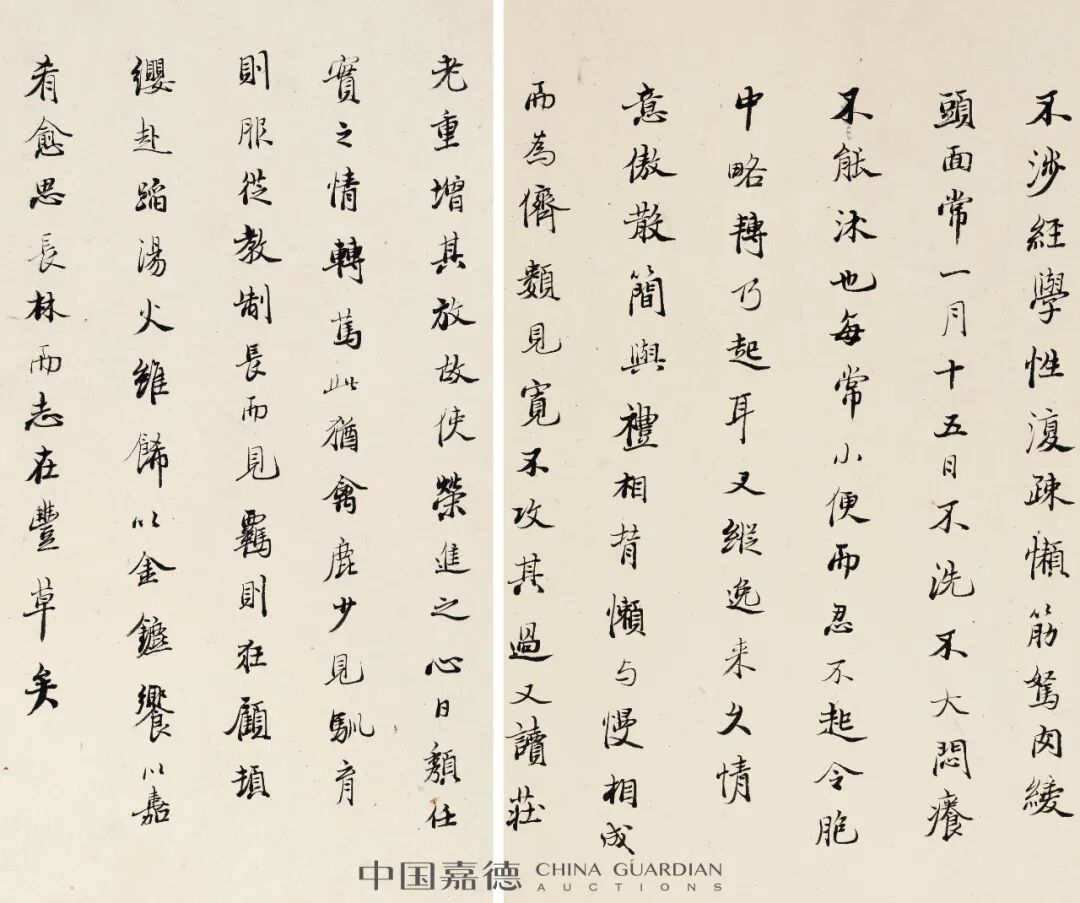 不涉經學性復疎懶筋駑肉緩
頭面常一月十五日不洗不大悶癢
不能沐也每常小便而忍不起令胞
中略轉乃起耳又縱逸来久情
意傲散簡與禮相背懶与慢相成
而為儕類見寬不攻其過又讀莊
老重增其放故使榮進之心日頹任
實之情轉篤此猶禽鹿少見馴育
則服從教制長而見羈則狂顧頓
纓赴蹈湯火雖餙以金鑣饗以嘉
肴愈思長林而志在豐草矣
中国嘉德 CHINA GUARDIAN AUCTIONS